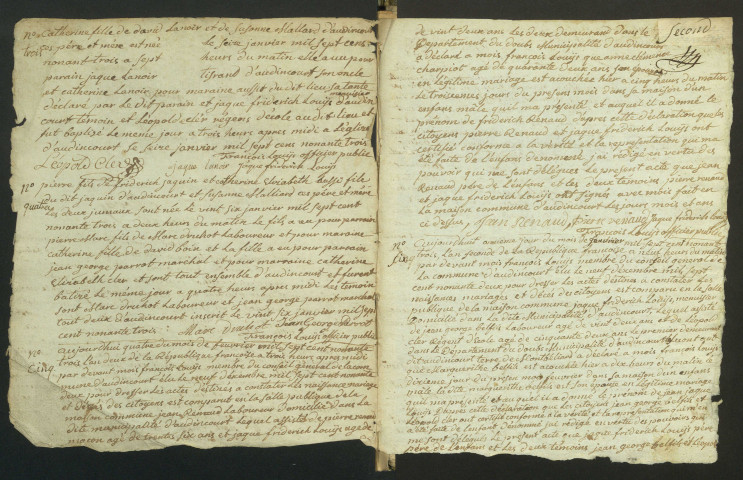 no Catherine fille de david Lanoir et de Susanne Mallard d'audincourt
trois ses père et mère est née le seize janvier mil sept cens
nonant trois a sept heurs du matin elle a eu pour
parain jaque Lanoir tisrant d'audincourt son oncle
et catherice Lanoir, pour maraine aussi du dit lieu sa tante
déclaré par le dit parain et jaque friderich Louijs d'audin
court témoin et Léopold cler régens decole audit lieu et
fut baptizé le meme jour a trois heures apres midi a Leglise
d'audincourt le seize janvier mil sept cens nonante trois
François Louijs officier public
Leopold Cler jaque Lanoir jaque friderich Louijs
no pierre fils de friderich jaquin et catherine Elizabeth fille
quatre du dit jaquin d'audincourt et Susanne Malliard ces père et mere
les deux jumaux sont née le vint six janvier mil sept cent
nonante trois a deux heurs du matin le fils a eu pour parain
pierre Marc fils de Marc Druchot Laboureur et pour maraine
catherine fille de david boin et La fille a eu pour parain
jean george parrot marchal et pour marraine catherine
Elizabeth cler et sont tout ensemble d'audincourt et furent
batizé Le meme jour a quatre heurs apres midi Les temoin
sont Marc Druchot Laboureur et jean george parrot marchand
tout deux d'audincourt inscrit le vint six janvier mil sept
cent nonante trois Marc Druchot Jean George Parrot
François Louijs officier public
no aujourdhui quatre du mois de feuvrier mil sept cent nonante
Cinq trois Lan deux de la Republique françoise a trois heurs apres midi
par devant moi françois Louijs membre du conseil général de la com
mune d'audincourt elu le neuf decembre mil sept cent nonante
deux pour dresser Les actes destines a constater Les naissance mariage
et déces des citoyens est comparut en la salle publique de la
maison commune jean Renaud Laboureur domicilié dans La
dite municipalité d'audincourt Lequel assisté de pierre renaud
maçon agé de trente six ans et jaque friderich Louijs agé de
Second
de vint deux ans les deux demeurant dans le
Departement du doubs Municipalité d'audincourt
a déclaré a mois françois Louijs que anne
champiot agé de quarante deux ans son epouse
en légitime mariage est acouchée hier a cinq heurs du matin
Le troisieme jour du presens mois dans sa maison d'un
enfans mâle quil ma presenté et auquel il a donné le
prenom de friderich Renaud d'apres cette déclaration que les
citoyens pierre Renaud et jaque friderich Louijs ont
certifié conforme a la verité et la representation qui ma
été faite de l'enfans denommé jai rédigé en vertu des
pouvoir qui me sont délégués Le presens acte que jean
Renaud père de Lenfans et les deux témoins pierre renaud
et jaque friderich Louijs ont signés avec mois fait en
La maison commune d'audincourt Les jour mois et ans
ci dessus Jean Renaud pierre renaud jaque friderich Louijs
François Louijs officier public
no Aujourdhuit du mois de janvier mil sept cent nonante
six trois Lan second de la Republique a neuf heurs du matin
par devant mois françois Louijs membre du conseil general de
La commune d'audincourt élu le neuf décembre mil sept
cent nonante deux pour dresser les acte destines a constater Les
naissances mariages et décès des citoyens est comparus en la salle
publique de la maison commune jaque friderich Louijs
Domicilié dans la dite Municipalité d'audincourt Lequel assisté
de jean george Laboureur agé de vent deux ans et de Leopold
Cler Régent d'école agé de cinquante deux ans
dans le Departement du doubs Municipalité d'audincourt
a déclaré a mois françois Louijs
que Margueritte est acouchée hier a heurs du matin le
dixieme jour du presens mois dans sa maison d'un enfans
son épouse en légitime mariage
qu'il ma présenté et auquel il a donné le prenom de jean jaque
Louijs d'apres cette déclaration que les citoyens jean george et
Leopold cler ont certifié conforme a la verité et la representation qui ma
été faite de l'enfans dénommé jai rédigé en vertu des pouvoirs qui
me sont délégués le presens acte que jaque friderich Louijs père
de Lenfans et les deux témoins jean george et Léopold